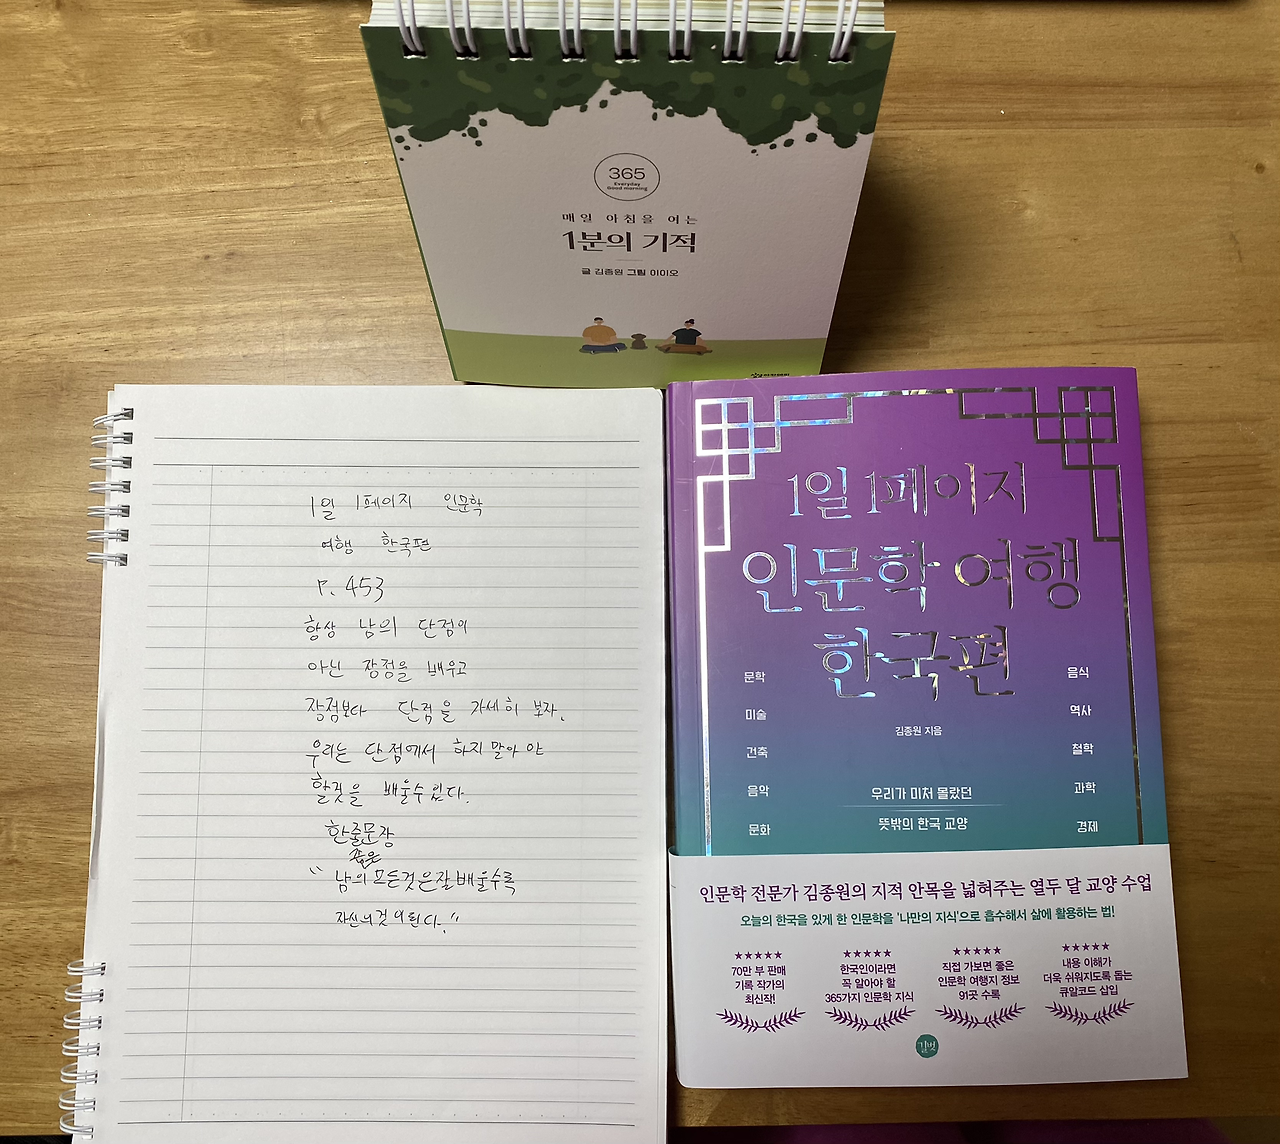 365
Everyday
Good morning
매일 아침을 여는
1분의 기적
글 김종원 그림 이이오
1일 1페이지 인문학
여행 한국편
P. 453
항상 남의 단점이
아닌 장점을 배우고
장점보다 단점을 자세히 보자.
우리는 단점에서 하지 말아야
할것을 배울수있다.
한줄문장
좁은
" 남의 모든것은잘배울수록
자신의것이된다."
1일 1페이지
인문학 여행
한국편
문학
미술
건축
음악
문화
음식
역사
철학
과학
경제
김종원 지음
우리가 미처 몰랐던
뜻밖의 한국 교양
인문학 전문가 김종원의 지적 안목을 넓혀주는 열두 달 교양 수업
오늘의 한국을 있게 한 인문학을 '나만의 지식'으로 흡수해서 삶에 활용하는 법!
★★★★★
70만 부 판매
기록 작가의
최신작!
★★★★★
한국인이라면
꼭 알아야 할
365가지 인문학 지식
★★★★★
직접 가보면 좋은
인문학 여행지 정보
91곳 수록
★★★★★
내용 이해가
더욱 쉬워지도록 돕는
큐알코드 삽입
길벗